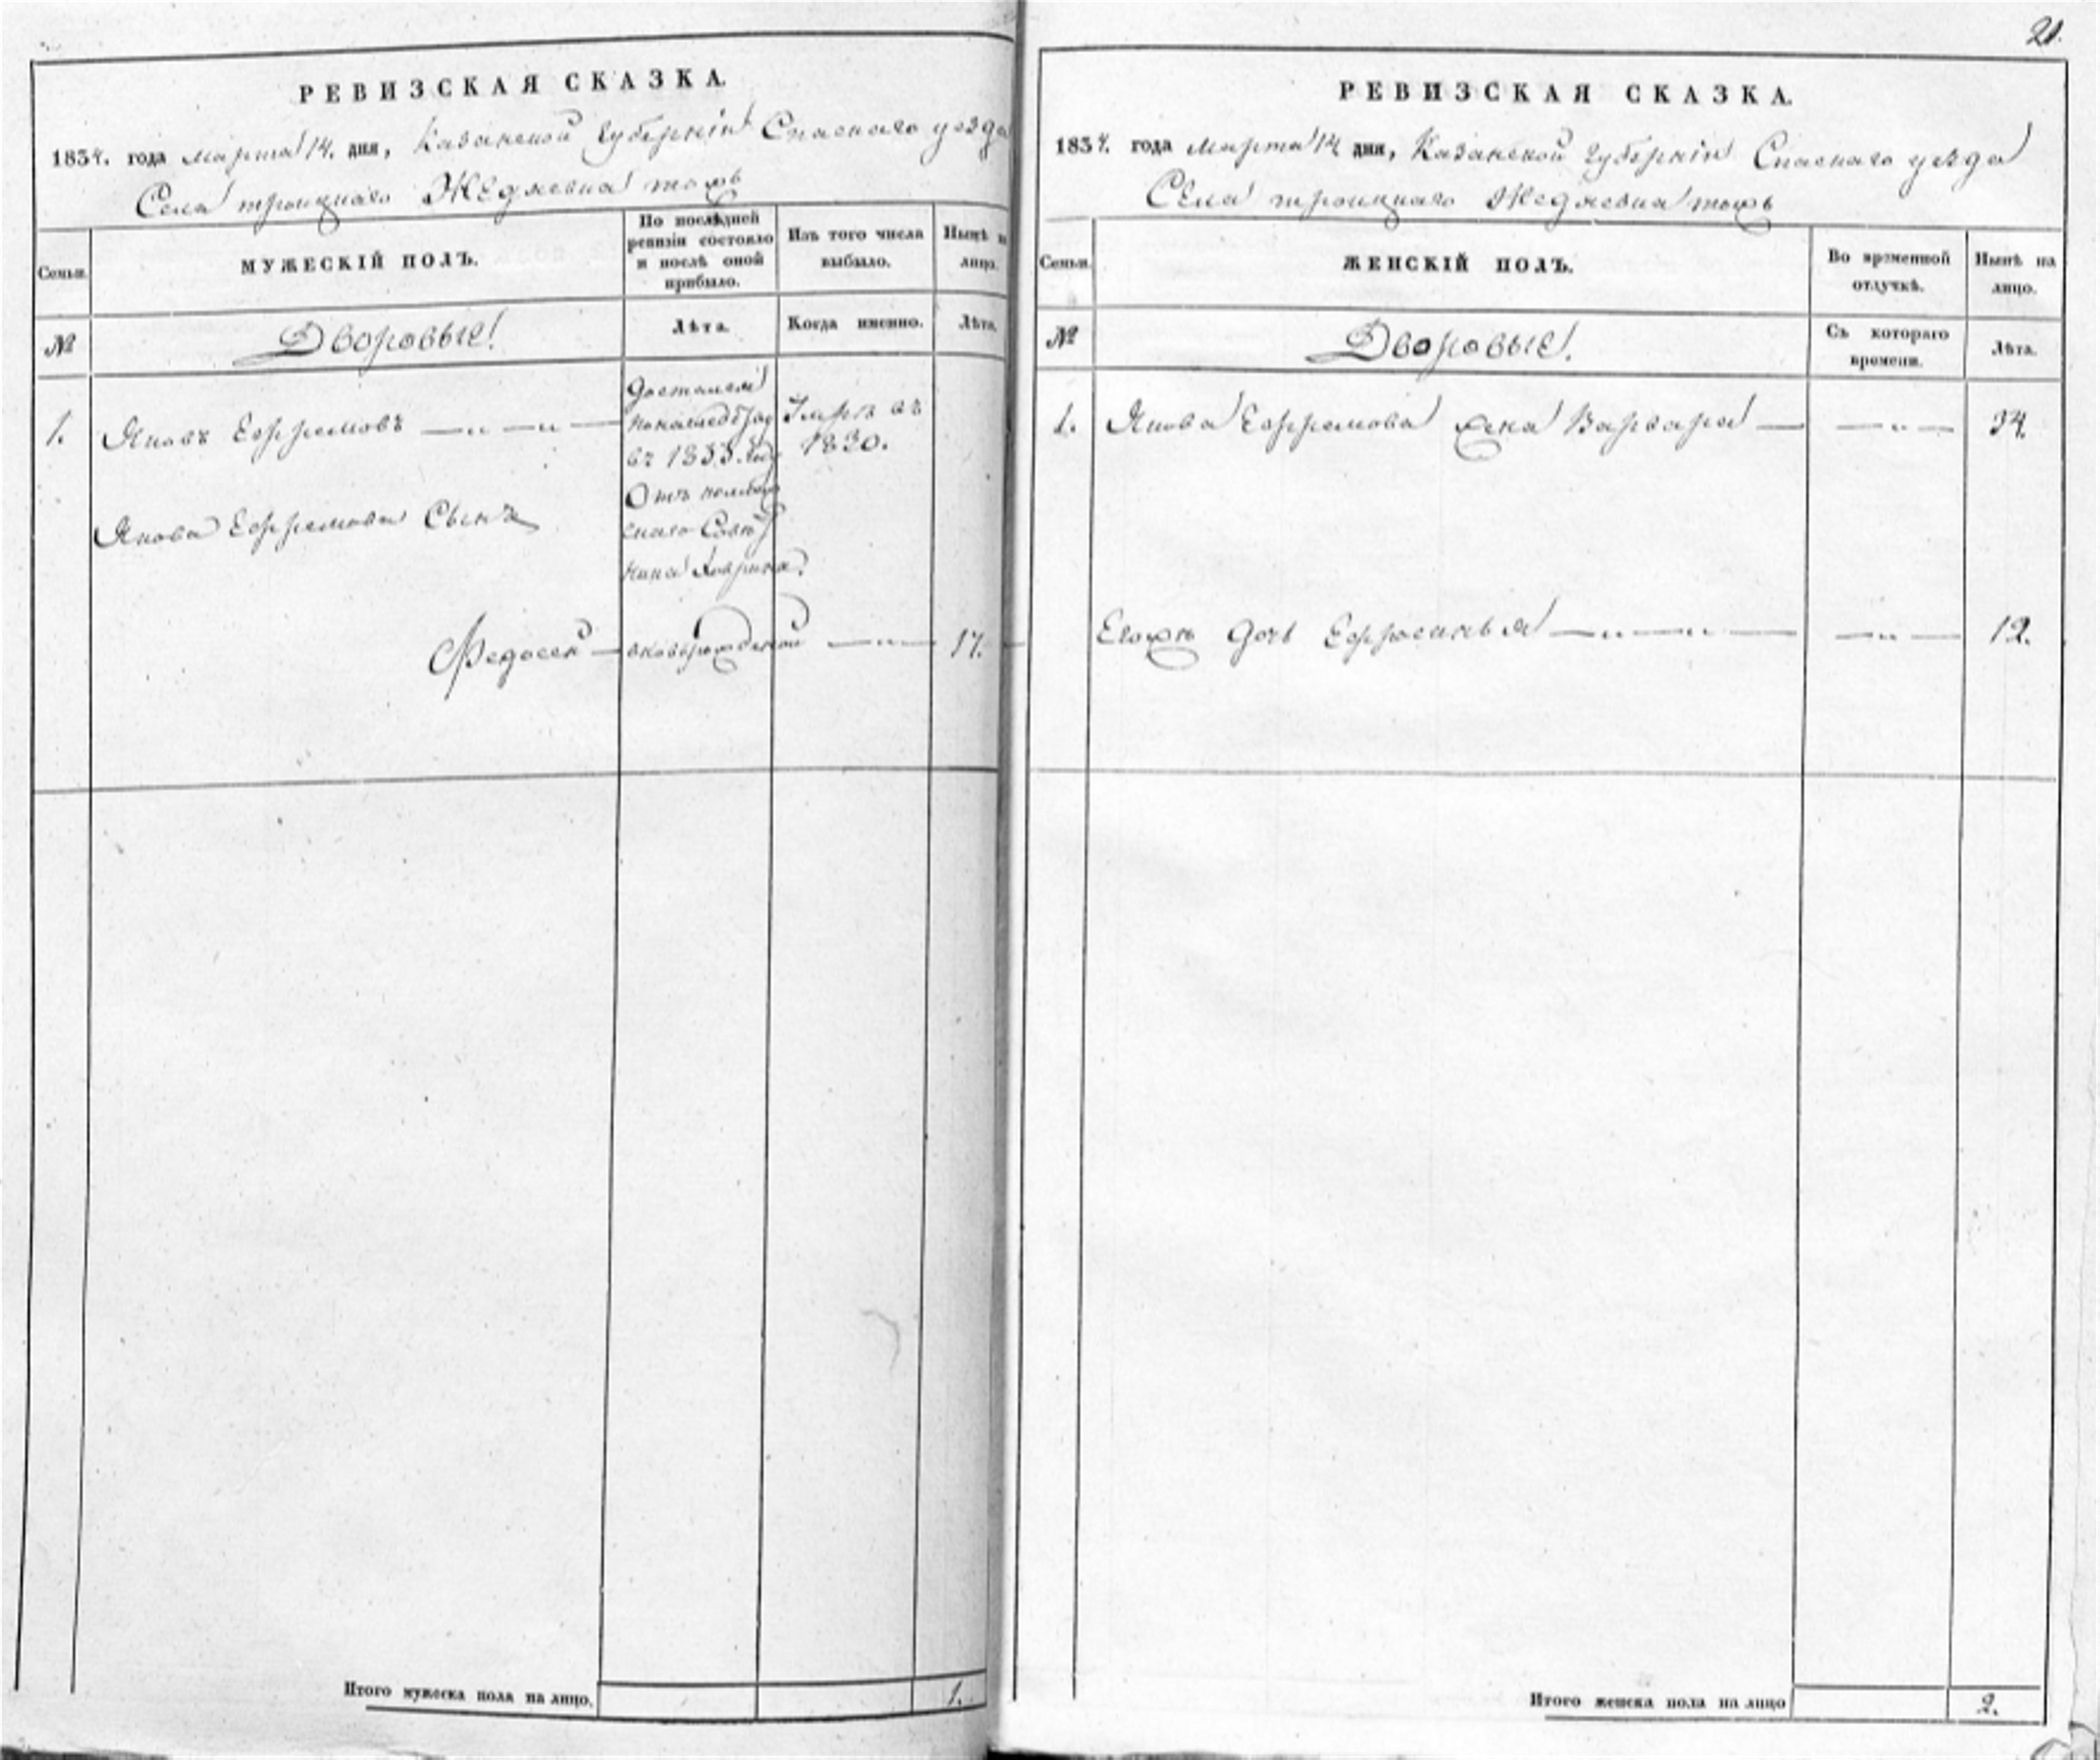 РЕВИЗСКАЯ СКАЗКА.
1834. года марта 14. дня, Казанской губерніи Спаскаго уезда
Села троицкаго Жедяевка тожъ
Семьи.
МУЖЕСКІЙ ПОЛЪ.
По послѣдней ревизіи состояло и послѣ оной прибыло.
Изъ того числа выбыло.
Нынѣ на лицо.
№
Дворовые.
Лѣта.
Когда именно.
Лѣта.
1. Яковъ Ефремовъ
Достался
въ 1833. году
Отъ
Умръ въ
1830.
Якова Ефремова Сынъ
Федосей
17.
Итого мужеска пола на лицо.
1.
21.
РЕВИЗСКАЯ СКАЗКА.
1834. года Марта 14 дня, Казанской губерніи Спаскаго уезда
Села троицкаго Жедяевка тожъ
Семьи.
ЖЕНСКІЙ ПОЛЪ.
Во временной отлучкѣ.
Нынѣ на лицо.
№
Дворовые.
Съ котораго времени.
Лѣта.
1. Якова Ефремова жена Варвара 34.
Егожъ дочь Ефросинья 12.
Итого женска пола на лицо
2.